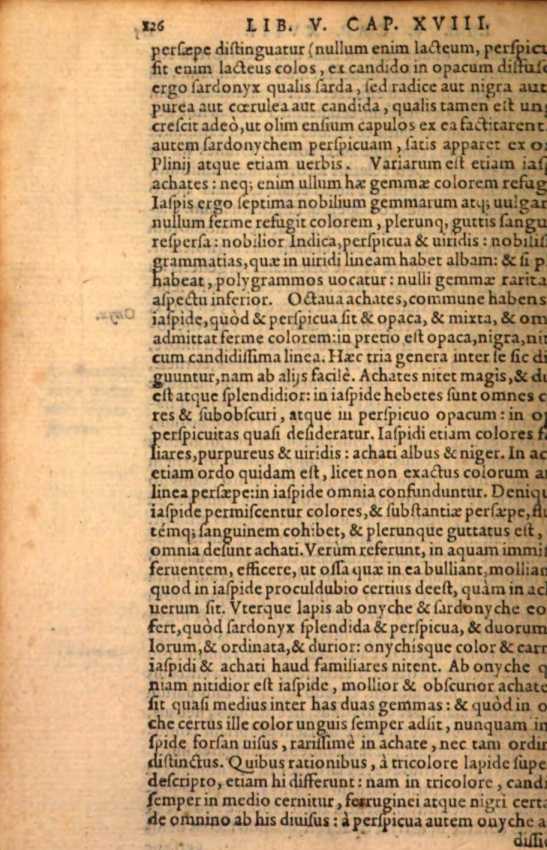 126 LIB. V. CAP. XVIII.
persæpe distinguatur (nullum enim lacteum, perspicu
sit enim lacteus colos, ex candido in opacum diffuse
ergo sardonyx qualis sarda, sed radice aut nigra aut
purea aut cœrulea aut candida, qualis tamen est ung
crescit adeò, ut olim ensium capulos ex ea factitarent
autem sardonychem perspicuam, satis apparet ex o
Plinij atque etiam uerbis. Variarum est etiam iasp
achates: neq; enim ullum hæ gemmæ colorem refug
Iaspis ergo septima nobilium gemmarum atq; uulgar
nullum ferme refugit colorem, plerunq, guttis sangu
respersa: nobilior Indica, perspicua & uiridis: nobilis
grammatias, quæ in uiridi lineam habet albam: & si p
habeat, polygrammos uocatur: nulli gemmæ rarita
aspectu inferior. Octaua achates, commune habens
iaspide, quòd & perspicua sit & opaca, & mixta, & om
admittat ferme colorem: in pretio est opaca, nigra, nit
cum candidissima linea. Hæc tria genera inter se sic di
guuntur, nam ab alijs facilè. Achates nitet magis, & du
est atque splendidior: in iaspide hebetes sunt omnes c
res & subobscuri, atque in perspicuo opacum: in o
perspicuitas quasi desideratur. Iaspidi etiam colores fa
liares, purpureus & uiridis: achati albus & niger. In ac
etiam ordo quidam est, licet non exactus colorum a
linea persæpe: in iaspide omnia confunduntur. Deniq
iaspide permiscentur colores, & substantiæ persæpe, flu
témq; sanguinem cohibet, & plerunque guttatus est,
omnia desunt achati. Verùm referunt, in aquam immi
feruentem, efficere, ut ossa quæ in ea bulliant, mollian
quod in iaspide proculdubio certius deest, quàm in ac
uerum sit. Vterque lapis ab onyche & sardonyche eo
fert, quòd sardonyx splendida & perspicua, & duorum
lorum, & ordinata, & durior: onychisque color & carn
iaspidi & achati haud familiares nitent. Ab onyche q
niam nitidior est iaspide, mollior & obscurior achate
sit quasi medius inter has duas gemmas: & quòd in o
che certus ille color unguis semper adsit, nunquam in
spide forsan uisus, rarissimè in achate, nec tam ordin
distinctus. Quibus rationibus, à tricolore lapide supe
descripto, etiam hi differunt: nam in tricolore, candi
semper in medio cernitur, ferruginei atque nigri certa
de omnino ab his diuisus: à perspicua autem onyche a
dissi